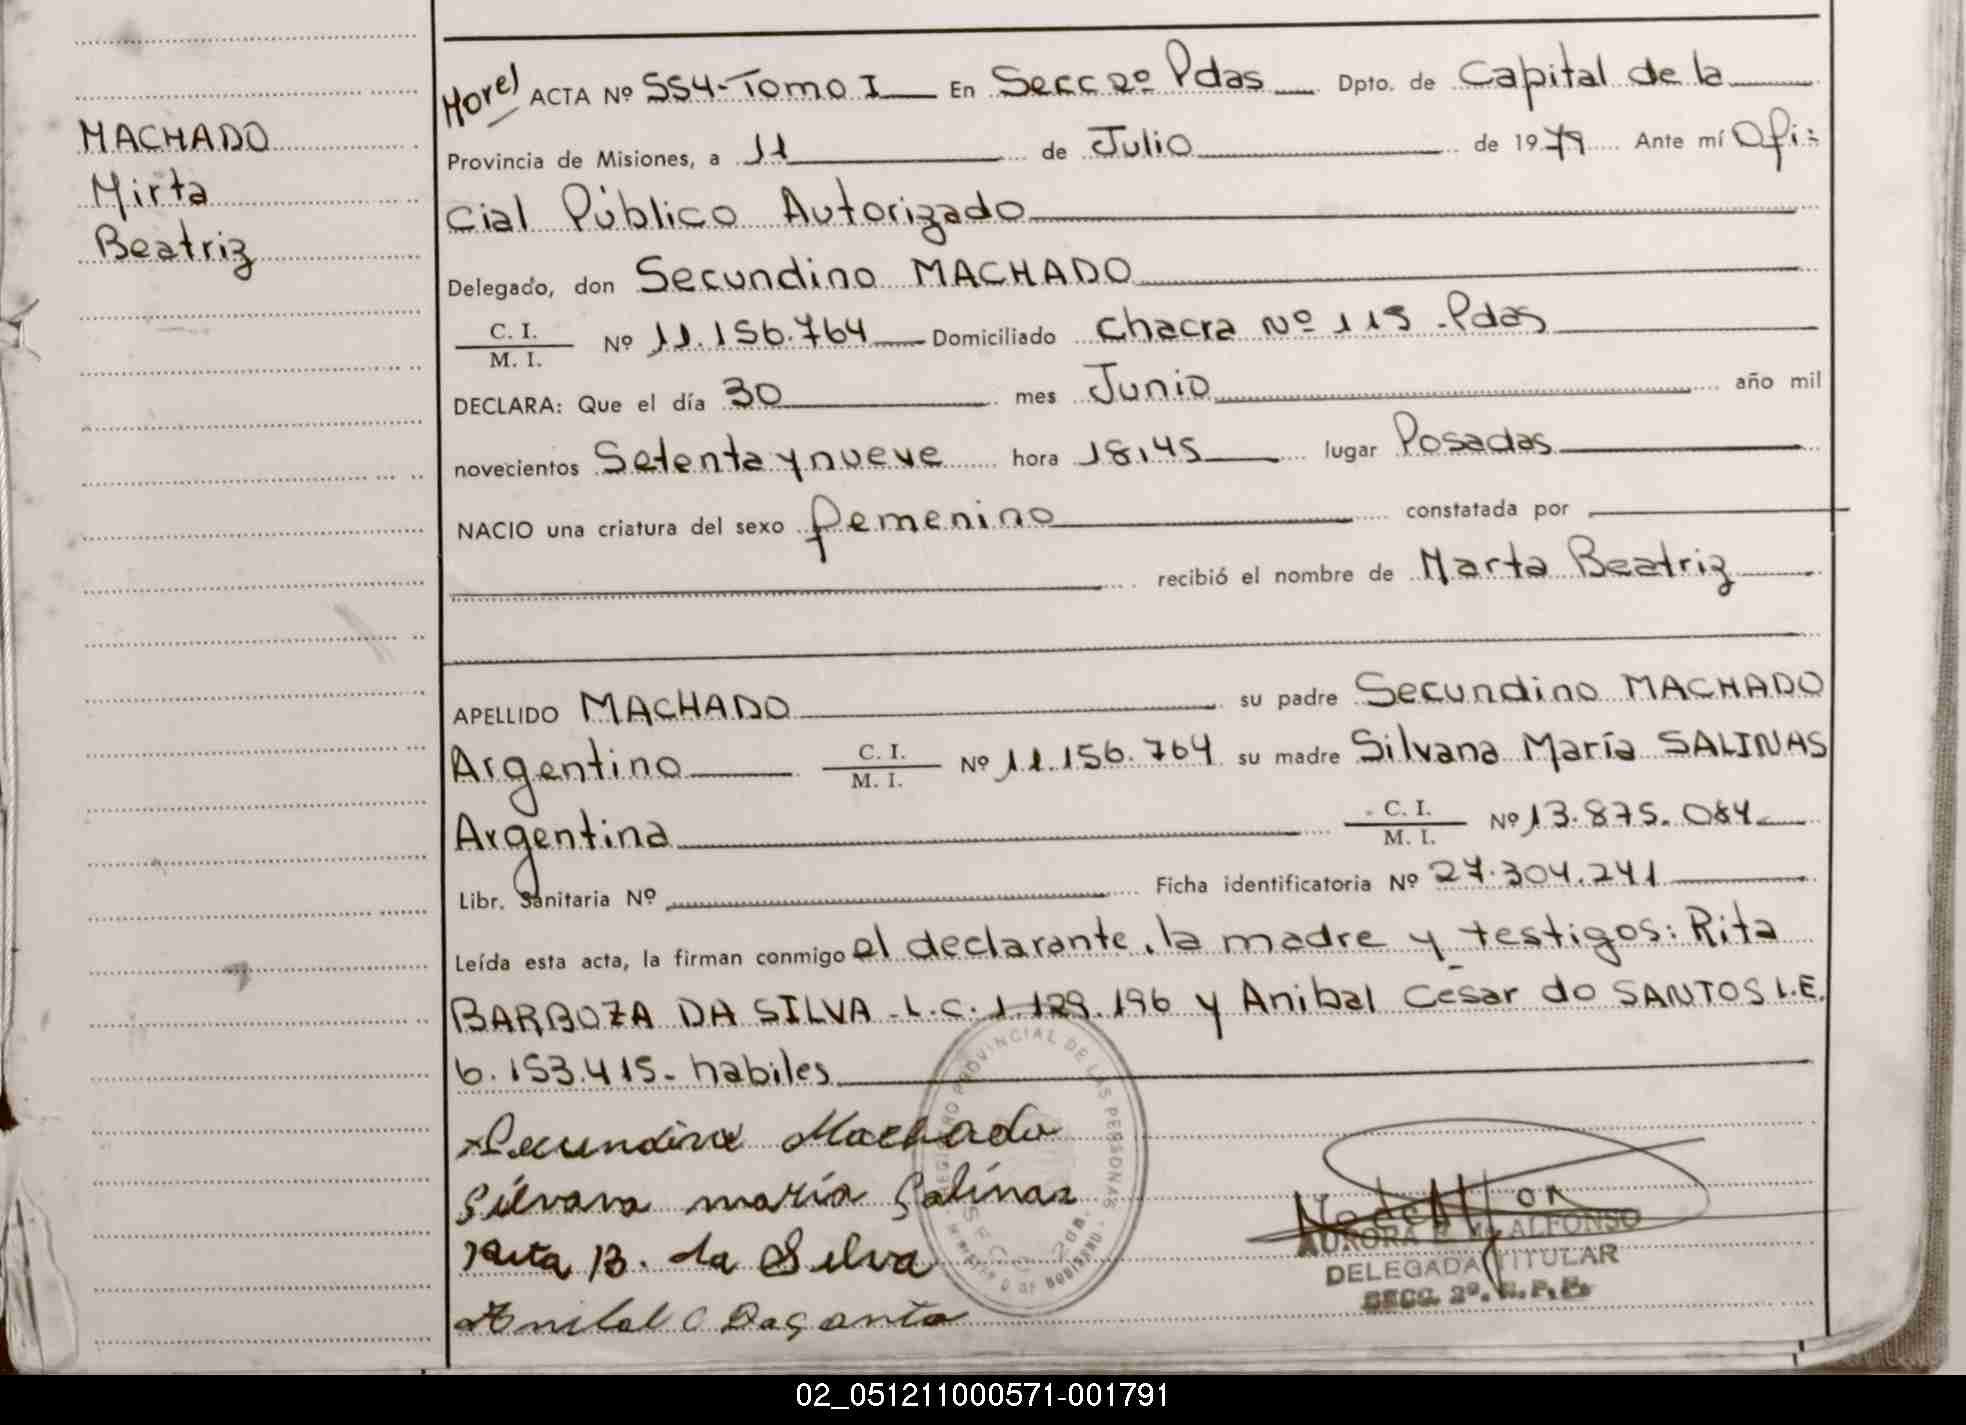 MACHADO
Mirta
Beatriz
ACTA Nº 554-Tomo I En Secc 2º Pdas Dpto. de Capital de la
Provincia de Misiones, a 11 de Julio de 1979 Ante mí Ofi-
cial Público Autorizado
Delegado, don Secundino MACHADO
C. I.
M. I.
Nº 11.156.764 Domiciliado Chacra Nº 115 - Pdas
DECLARA: Que el día 30 mes Junio año mil
novecientos Setenta y nueve hora 18,45 lugar Posadas
NACIO una criatura del sexo femenino constatada por
recibió el nombre de Marta Beatriz
APELLIDO MACHADO su padre Secundino MACHADO
Argentino C. I. M. I. Nº 11.156.764 su madre Silvana María SALINAS
Argentina C. I. M. I. Nº 13.875.084
Libr. Sanitaria Nº Ficha identificatoria Nº 27.304.241
Leída esta acta, la firman conmigo el declarante, la madre y testigos: Rita
BARBOZA DA SILVA - L.C. 1.129.196 y Anibal Cesar do SANTOS L.E.
6.153.415- habiles
Secundino Machado
Silvana maría Salinas
Rita B. da Silva
REGISTRO PROVINCIAL DE LAS PERSONAS
MINISTERIO DE GOBIERNO
SECC. 2da.
ALFONSO
DELEGADA TITULAR
SECC. 2º. R. P. P.
02_051211000571-001791